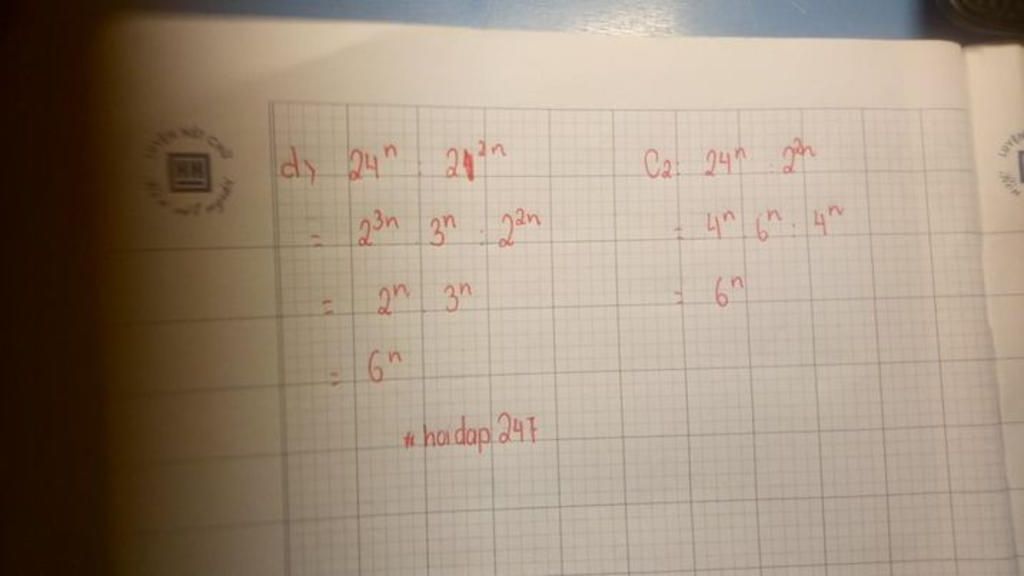 d) 24ⁿ : 2²ⁿ
= 2³ⁿ . 3ⁿ : 2²ⁿ
= 2ⁿ . 3ⁿ
= 6ⁿ
# hoidap 247
C2: 24ⁿ : 2²ⁿ
= 4ⁿ . 6ⁿ : 4ⁿ
= 6ⁿ